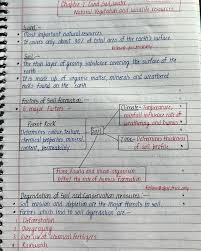 Chapter 1 Land, Soil, Water
Natural Vegetation and wildlife resources
Land :-
• Most important natural resources
• It covers only about 30% of total area of the earth's surface
Soil :-
• The thin layer of grainy substance covering the surface of the
earth
• It is made up of organic matter, minerals and weathered
rocks found on the Earth
Factors of Soil formation :-
• Major factors :-
Climate - Temperature,
rainfall influence rate of
weathering and humus
Parent Rock
Determines colour, texture,
chemical properties, mineral,
content, permeability
Soil
Time - Determines thickness
of soil profile
Flora, Fauna and micro organism
Affect the rate of humus formation
Degradation of Soil and Conservation measures :-
• Soil erosion and depletion are the major threats to soil.
• Factors which lead to soil degradation are -
1. Deforestation
2. Overgrazing
3. Overuse of chemical fertilizers
4. Rainwash